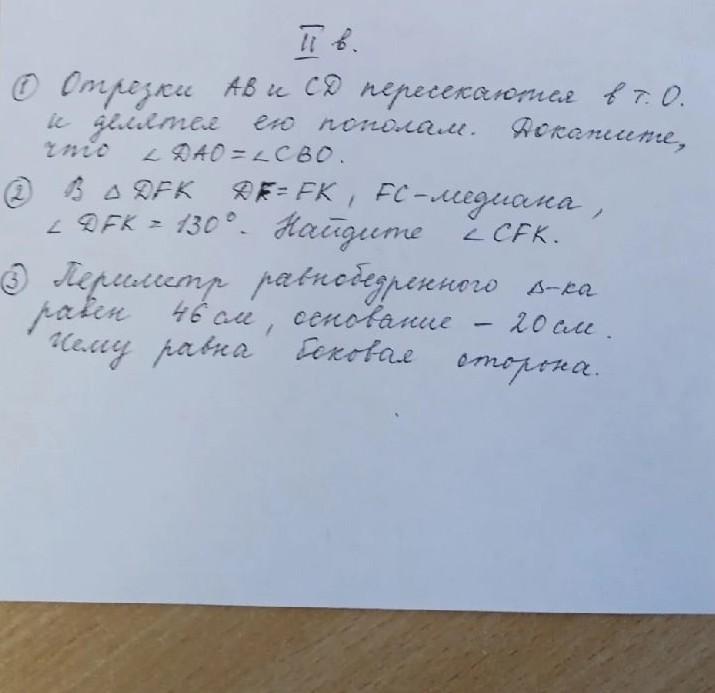 II в.
① Отрезки AB и CD пересекаются в т. O.
и делятся ею пополам. Докажите,
что ∠DAO=∠CBO.
② В △DFK DF=FK, FC-медиана,
∠DFK = 130°. Найдите ∠CFK.
③ Периметр равнобедренного △-ка
равен 46 см, основание – 20 см.
Чему равна боковая сторона.